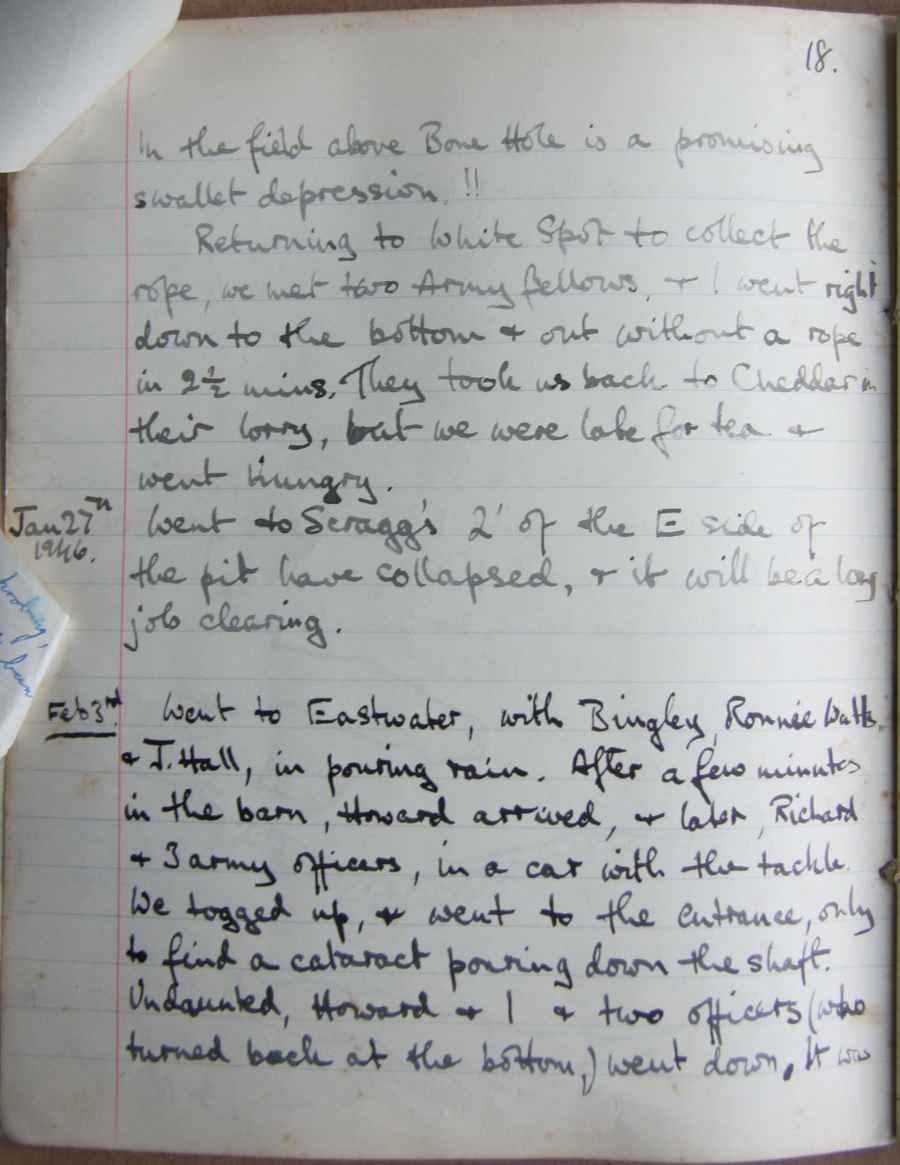 18.
In the field above Bone Hole is a promising
swallet depression. !!
Returning to White Spot to collect the
rope, we met two Army fellows, + I went right
down to the bottom + out without a rope
in 2½ mins. They took us back to Cheddar in
their lorry, but we were late for tea +
went hungry.
Jan 27th
1946.
Went to Scragg's 2' of the E side of
the pit have collapsed, + it will be a long
job clearing.
Feb 3rd.
Went to Eastwater, with Bingley, Ronnie Watts.
+ J. Hall, in pouring rain. After a few minutes
in the barn, Howard arrived, + later, Richard
+ 3 army officers, in a car with the tackle.
We togged up, + went to the entrance, only
to find a cataract pouring down the shaft.
Undaunted, Howard + I + two officers (who
turned back at the bottom,) went down. It was